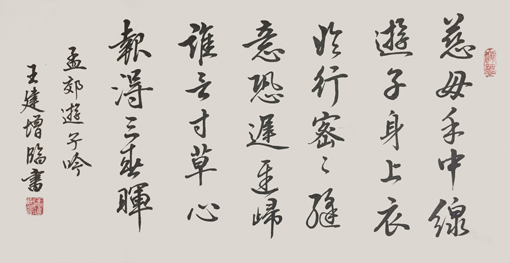 慈母手中線
遊子身上衣
臨行密〻縫
意恐遲遲歸
誰言寸草心
報得三春暉
孟郊遊子吟
王建增臨書